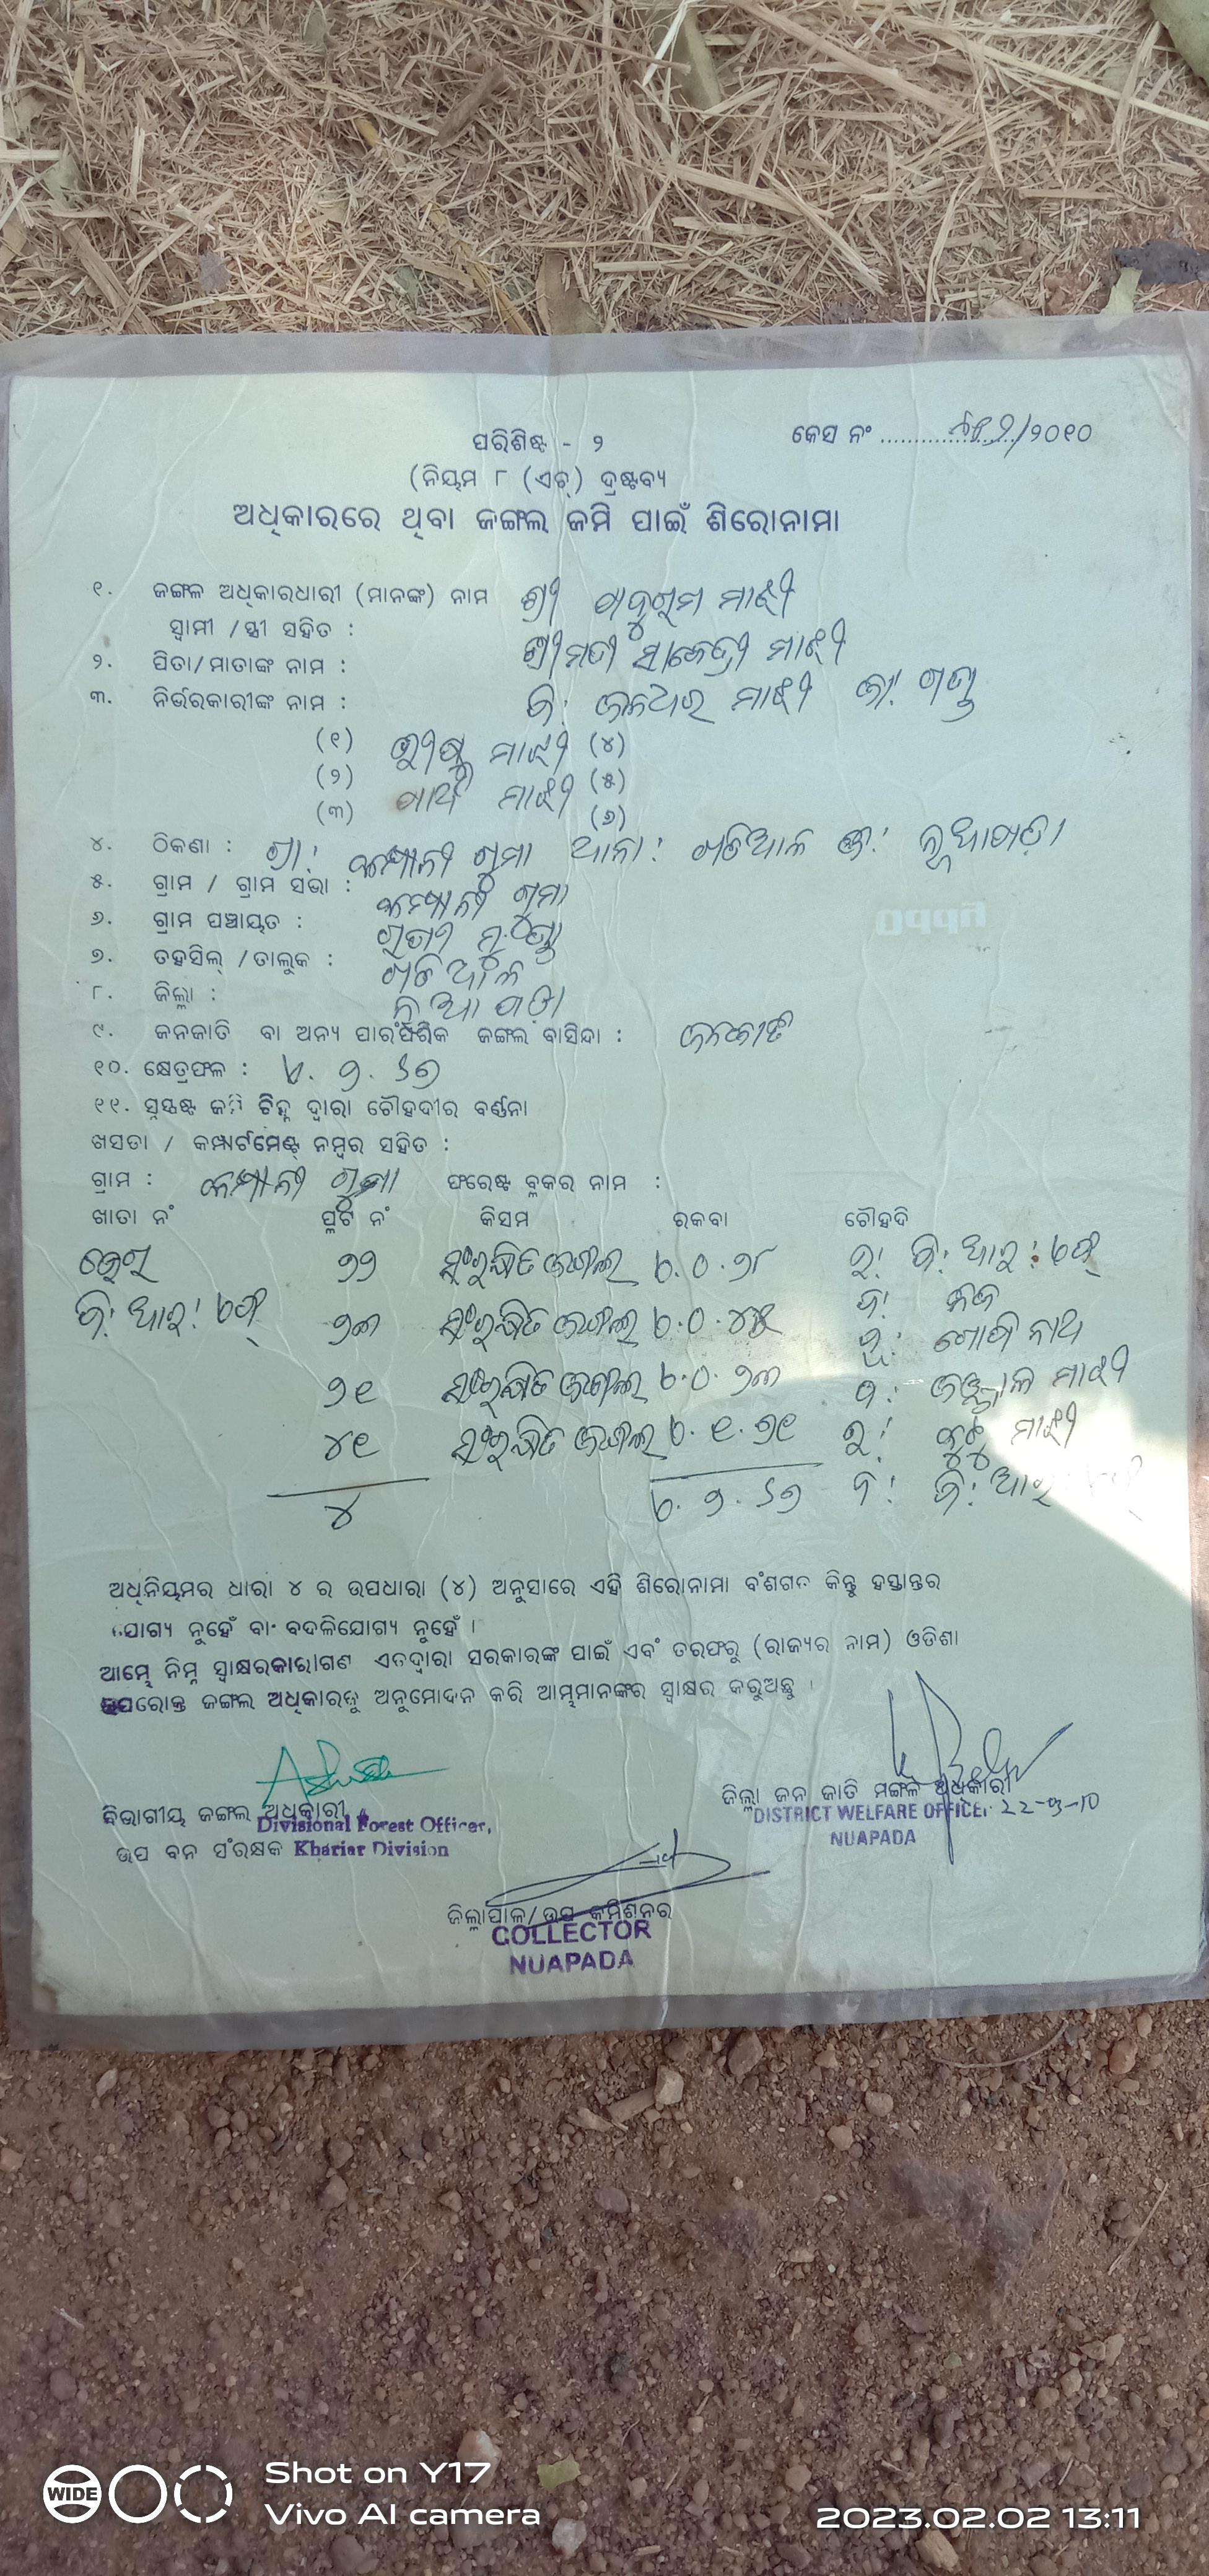 ପରିଶିଷ୍ଟ - ୨
କେସ ନଂ ..................../୨୦୧୦
(ନିୟମ ୮ (ଏଚ୍) ଦ୍ରଷ୍ଟବ୍ୟ
ଅଧିକାରରେ ଥିବା ଜଙ୍ଗଲ ଜମି ପାଇଁ ଶିରୋନାମା
୧. ଜଙ୍ଗଳ ଅଧିକାରଧାରୀ (ମାନଙ୍କ) ନାମ ଶ୍ରୀ ମାଝୀ
ସ୍ଵାମୀ /ସ୍ତ୍ରୀ ସହିତ : ଶ୍ରୀମତୀ ମାଝୀ
୨. ପିତା/ମାତାଙ୍କ ନାମ : ପି: ଜଳଧର ମାଝୀ ଜା: ଗଣ୍ଡ
୩. ନିର୍ଭରକାରୀଙ୍କ ନାମ :
(୧) ମାଝୀ (୪)
(୨) ମାଝୀ (୫)
(୩) (୬)
୪. ଠିକଣା : ଗ୍ରା: ଗୁମା ଥାନା: ଖଡିଆଳ ଜି: ନୂଆପଡ଼ା
୫. ଗ୍ରାମ / ଗ୍ରାମ ସଭା : ଗୁମା
୬. ଗ୍ରାମ ପଞ୍ଚାୟତ :
୭. ତହସିଲ୍ /ତାଲୁକ : ଖଡିଆଳ
୮. ଜିଲ୍ଲା : ନୂଆପଡ଼ା
୯. ଜନଜାତି ବା ଅନ୍ୟ ପାରଂପରିକ ଜଙ୍ଗଲ ବାସିନ୍ଦା : ଜନଜାତି
୧୦. କ୍ଷେତ୍ରଫଳ : ୨.୬୭
୧୧. ସୁସ୍ପଷ୍ଟ ଜମି ଚିହ୍ନ ଦ୍ଵାରା ଚୌହଦୀର ବର୍ଣ୍ଣନା
ଖସଡା / କମ୍ପାର୍ଟମେଣ୍ଟ୍ ନମ୍ବର ସହିତ :
ଗ୍ରାମ : ଗୁମା ଫରେଷ୍ଟ ବ୍ଲକର ନାମ :
ଖାତା ନଂ ପ୍ଲଟ ନଂ କିସମ ରକବା ଚୌହଦି
୨୨ ସଂରକ୍ଷିତ ଜଙ୍ଗଲ ୦.୦.୨୮ ଉ: ଡି: ଆର: ଏଫ୍
ଡି: ଆର: ଏଫ୍ ୨୩ ସଂରକ୍ଷିତ ଜଙ୍ଗଲ ୦.୦.୪୫ ଦ: ନିଜ
ପୂ: ଗୋପି ନାଥ
୨୧ ସଂରକ୍ଷିତ ଜଙ୍ଗଲ ୦.୦.୨୩ ପ: ମାଝୀ
୪୧ ସଂରକ୍ଷିତ ଜଙ୍ଗଲ ୦.୧.୭୧ ଉ: ମାଝୀ
୪ ୦.୨.୬୭ ଦ: ଡି: ଆର:
ଅଧିନିୟମର ଧାରା ୪ ର ଉପଧାରା (୪) ଅନୁସାରେ ଏହି ଶିରୋନାମା ବଂଶଗତ କିନ୍ତୁ ହସ୍ତାନ୍ତର
ଯୋଗ୍ୟ ନୁହେଁ ବା ବଦଳିଯୋଗ୍ୟ ନୁହେଁ ।
ଆମ୍ଭେ ନିମ୍ନ ସ୍ଵାକ୍ଷରକାରୀଗଣ ଏତଦ୍ଵାରା ସରକାରଙ୍କ ପାଇଁ ଏବଂ ତରଫରୁ (ରାଜ୍ୟର ନାମ) ଓଡିଶା
ଉପରୋକ୍ତ ଜଙ୍ଗଲ ଅଧିକାରକୁ ଅନୁମୋଦନ କରି ଆମ୍ଭମାନଙ୍କର ସ୍ଵାକ୍ଷର କରୁଅଛୁ ।
ବିଭାଗୀୟ ଜଙ୍ଗଲ ଅଧିକାରୀ /
Divisional Forest Officer,
ଉପ ବନ ସଂରକ୍ଷକ Khariar Division
ଜିଲ୍ଲା ଜନ ଜାତି ମଙ୍ଗଳ ଅଧିକାରୀ
DISTRICT WELFARE OFFICER 22-9-10
NUAPADA
ଜିଲ୍ଲାପାଳ/ଉପ କମିଶନର
COLLECTOR
NUAPADA
WIDE
Shot on Y17
Vivo AI camera
2023.02.02 13:11